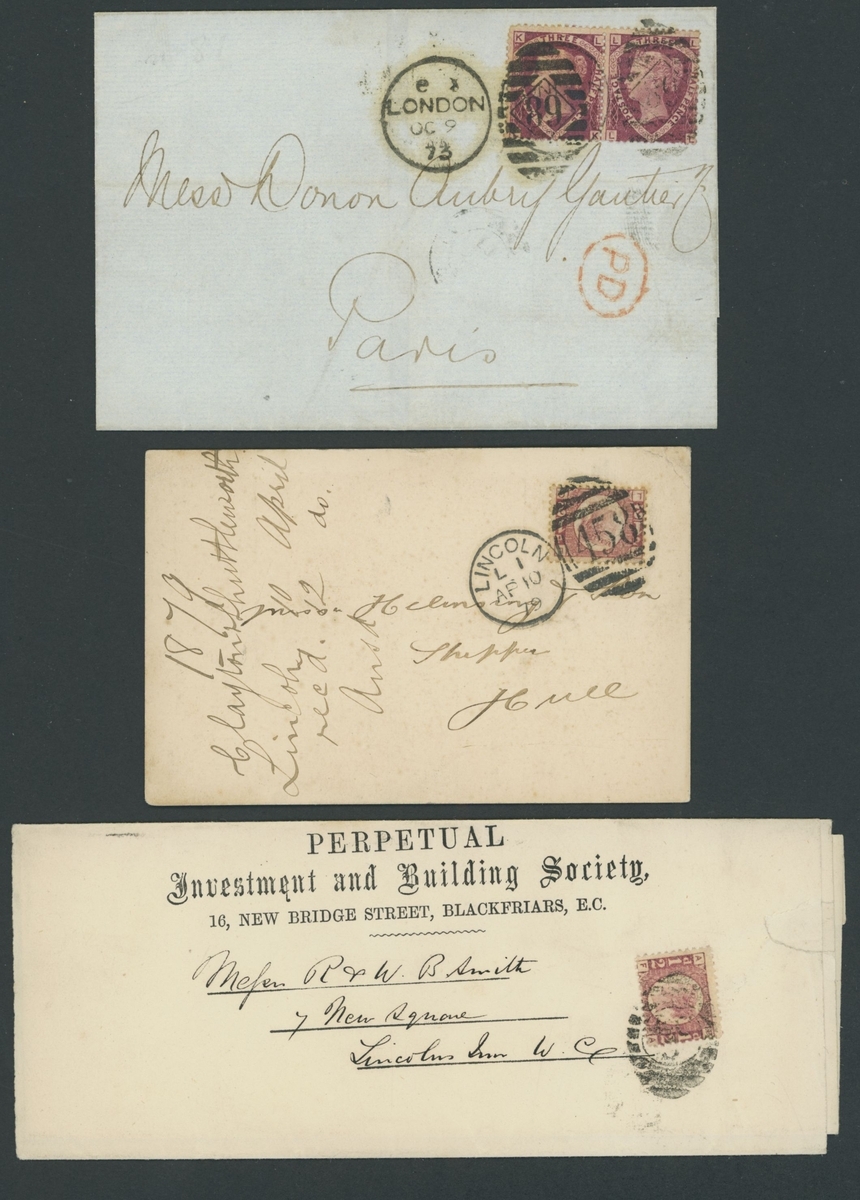 e x
LONDON
OC 9
73
89
K L
L L
THREE
THREE
Mess Donon Aubry Gautier &
PD
Paris
1879
Clayton & Shuttleworth
Lincoln 10 April
recd. 12 do.
Ansd
LINCOLN
L 1
AP 10
79
458
Messrs
Shipper
Hull
PERPETUAL
Investment and Building Society,
16, NEW BRIDGE STREET, BLACKFRIARS, E.C.
Messrs R & W. B Smith
7 New Square
Lincolns Inn W. C